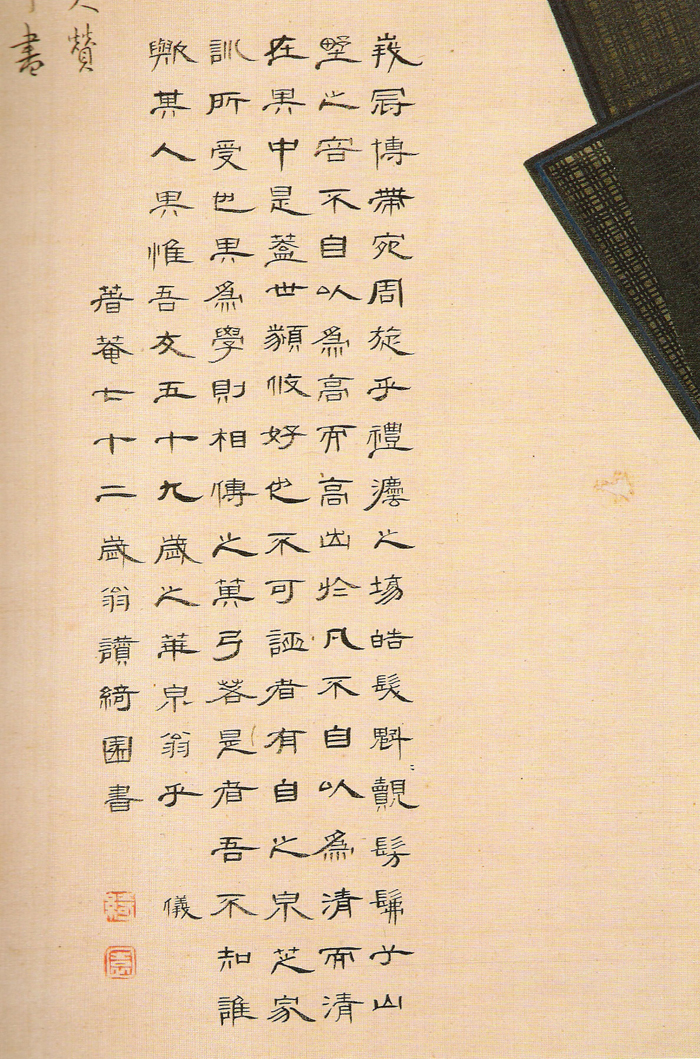 峩冠博帶宛周旋乎禮灋之場皓髮魁髣髴乎山
墅之容不自以爲高而高出於凡不自以爲清而清
在果中是蓋世類攸好也不可誣者有自之泉芝家
訓所受也果爲學則相傳之弓若是者吾不知誰
歟其人果惟吾友五十九歲之華泉翁乎 儀
菴七十二歲翁讚綺園書
贊
書